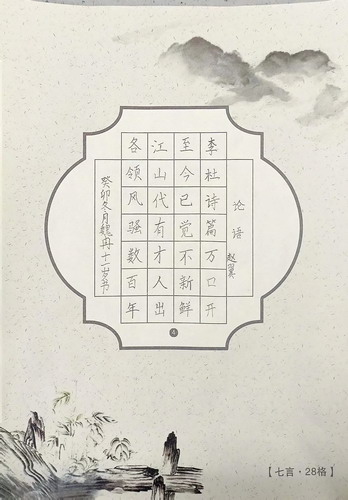 论语
赵翼
李杜诗篇万口开
至今已觉不新鲜
江山代有才人出
各领风强数百年
癸卯冬月魏冉十一岁书
【七言·28格】